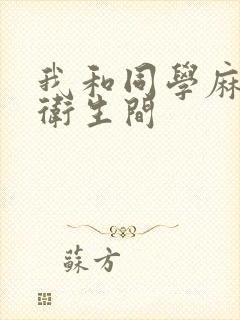 我和同學麻
衛生間
蘇方